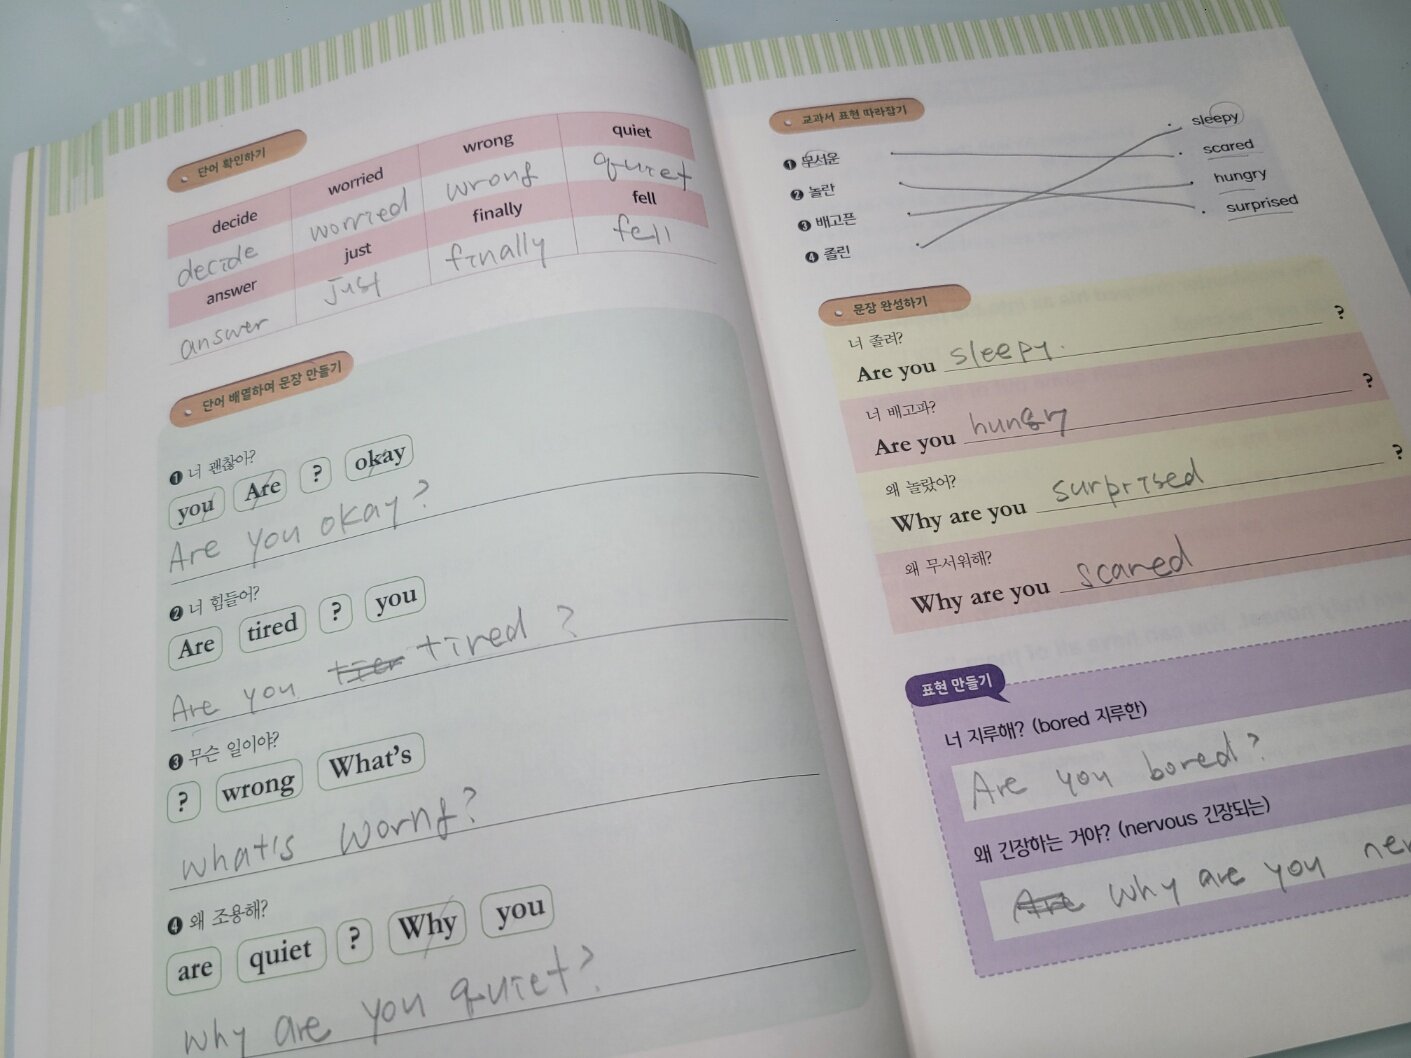 단어 확인하기
decide worried wrong quiet
decide worried wrong quiet
answer just finally fell
answer just finally fell
단어 배열하여 문장 만들기
❶ 너 괜찮아?
you Are ? okay
Are you okay?
❷ 너 힘들어?
Are tired ? you
Are you tier tired ?
❸ 무슨 일이야?
? wrong What's
what's worng?
❹ 왜 조용해?
are quiet ? Why you
why are you quiet?
교과서 표현 따라잡기
❶ 무서운
❷ 놀란
❸ 배고픈
❹ 졸린
sleepy
scared
hungry
surprised
문장 완성하기
너 졸려?
Are you sleepy. ?
너 배고파?
Are you hungry ?
왜 놀랐어?
Why are you surprised ?
왜 무서워해?
Why are you scared
표현 만들기
너 지루해? (bored 지루한)
Are you bored?
왜 긴장하는 거야? (nervous 긴장되는)
Are why are you ner